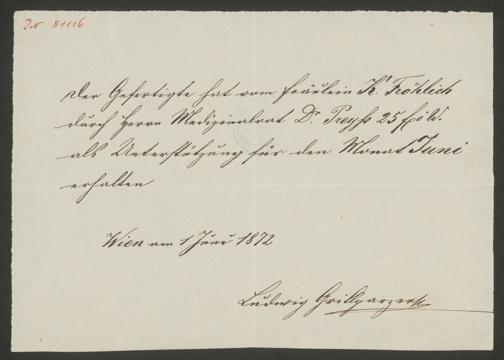 IN 81116
Der Gefertigte hat vom Fräulein K. Fröhlich
durch Herrn Medizinalrat Dr. Preyss 25 f ö W.
als Unterstützung für den Monat Juni
erhalten
Wien am 1 Juni 1872
Ludwig Grillparzer